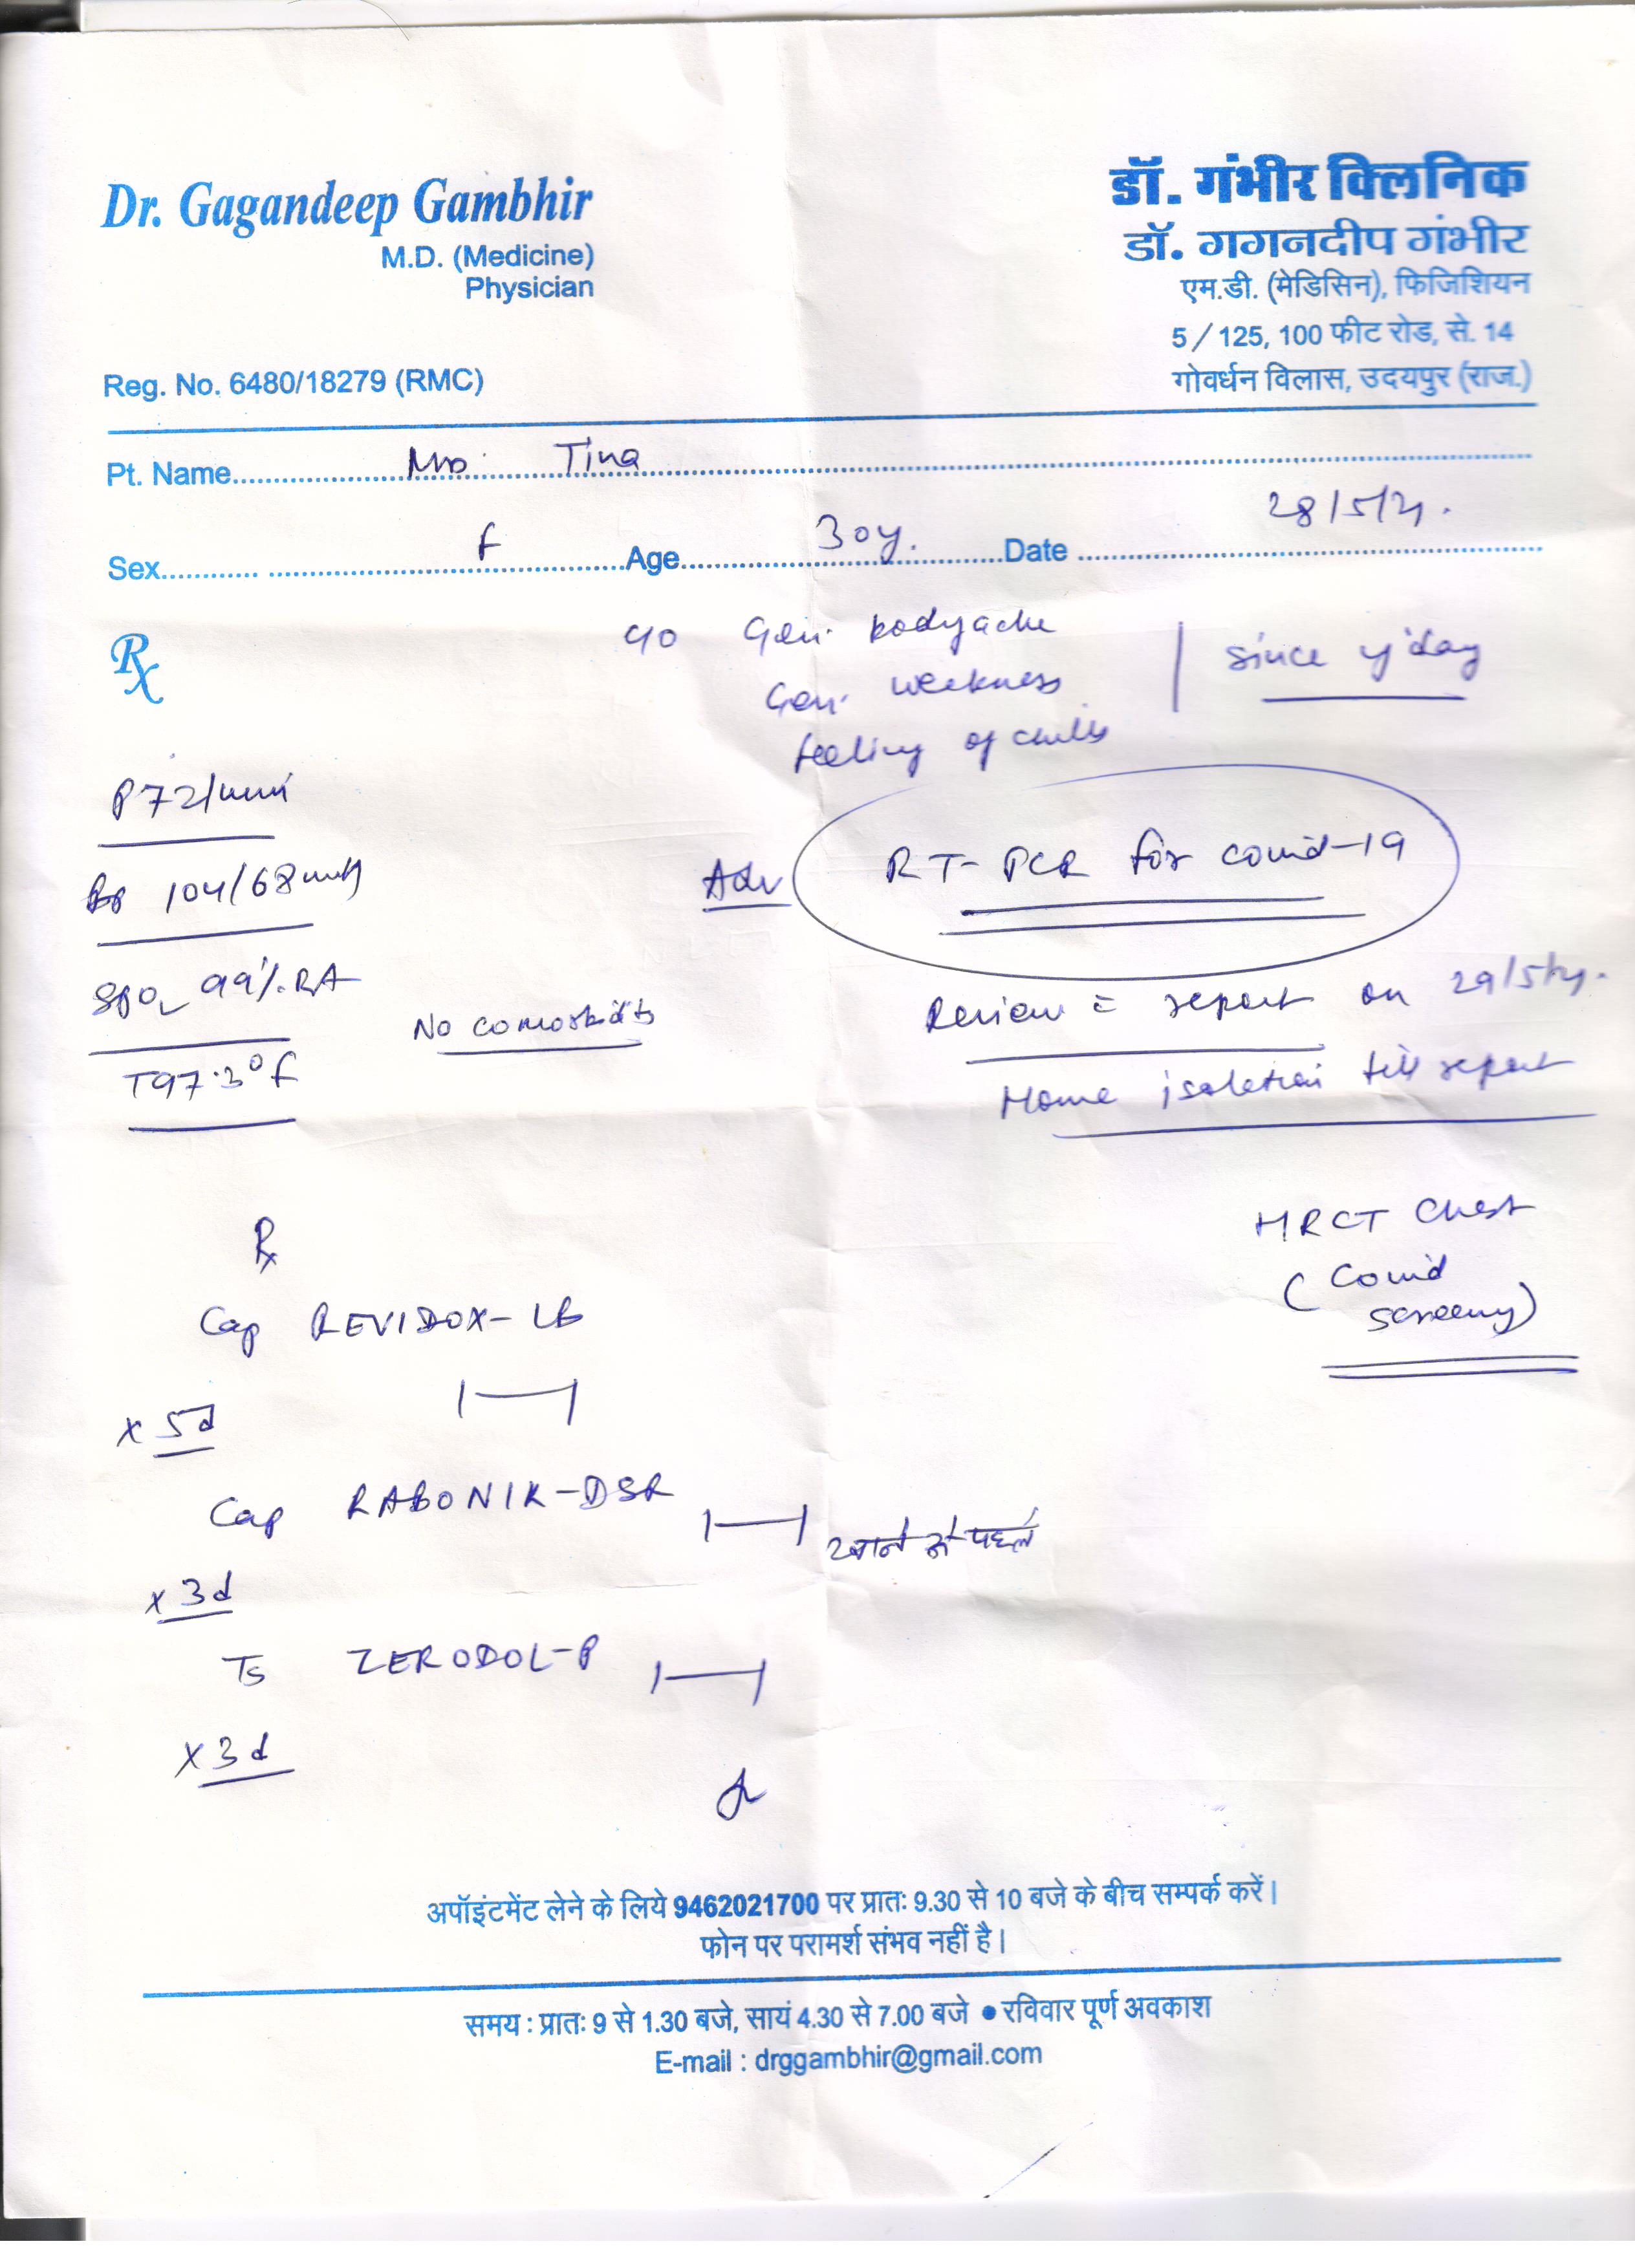 Dr. Gagandeep Gambhir
M.D. (Medicine)
Physician
Reg. No. 6480/18279 (RMC)
डॉ. गंभीर क्लिनिक
डॉ. गगनदीप गंभीर
एम.डी. (मेडिसिन), फिजिशियन
5/125, 100 फीट रोड, से. 14
गोवर्धन विलास, उदयपुर (राज.)
Pt. Name Mrs. Tina
Sex f Age 30y. Date 28/5/21.
Rx
c/o Gen. bodyache
Gen. weakness
feeling of chills
since y'day
P 72/min
BP 104/68 mmHg
SPO2 99% RA
T 97.3°f
No comorbidity
Adv RT-PCR for covid-19
Review c report on 29/5/21.
Home isolation till report
HRCT Chest
(Covid
screening)
Rx
Cap REVIDOX-LB
x 5d
Cap RABONIK-DSR खाने से पहले
x 3d
ZERODOL-P
x 3d
अपॉइंटमेंट लेने के लिये 9462021700 पर प्रातः 9.30 से 10 बजे के बीच सम्पर्क करें।
फोन पर परामर्श संभव नहीं है।
समय : प्रातः 9 से 1.30 बजे, सायं 4.30 से 7.00 बजे ● रविवार पूर्ण अवकाश
E-mail : drggambhir@gmail.com